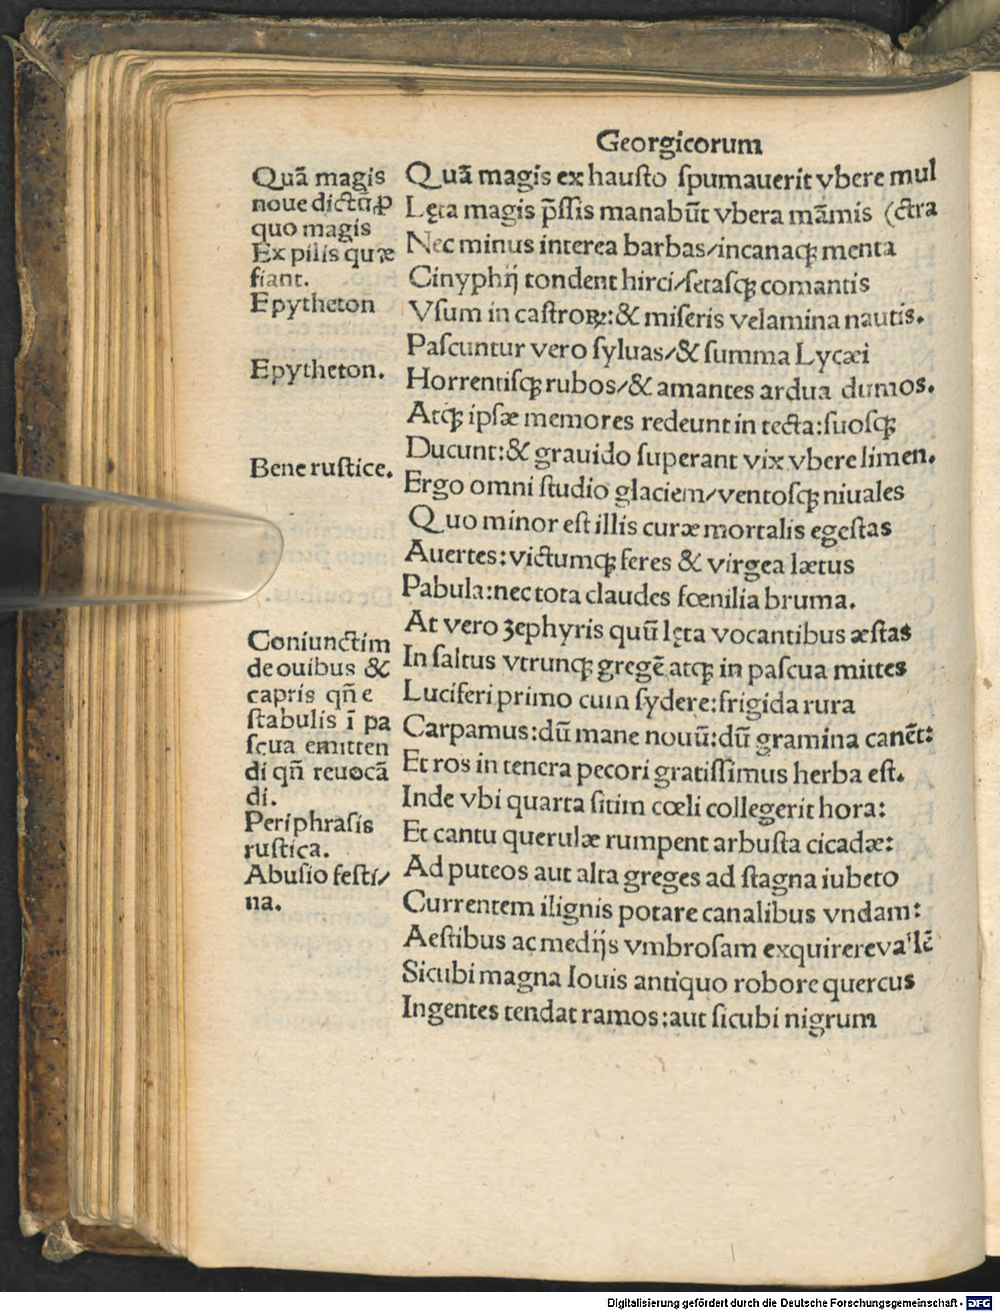 Georgicorum
Quã magis
noue dictũ ꝓ
quo magis
Ex pilis quæ
fiant.
Epytheton
Epytheton.
Bene rustice.
Coniunctim
de ouibus &
capris qñ e
stabulis ĩ pa
scua emitten
di qñ reuocã
di.
Periphrasis
rustica.
Abusio festi/
na.
Quã magis ex hausto spumauerit vbere mul
Lęta magis p̃ssis manabũt vbera mãmis (ctra
Nec minus interea barbas/incanaqꝫ menta
Cinyphij tondent hirci/setasqꝫ comantis
Vsum in castroꝝ:& miseris velamina nautis.
Pascuntur vero syluas/& summa Lycæi
Horrentisqꝫ rubos/& amantes ardua dumos.
Atqꝫ ipsæ memores redeunt in tecta:suosqꝫ
Ducunt:& grauido superant vix vbere limen.
Ergo omni studio glaciem/ventosqꝫ niuales
Quo minor est illis curæ mortalis egestas
Auertes:victumqꝫ feres & virgea lætus
Pabula:nec tota claudes fœnilia bruma.
At vero ʒephyris quũ lęta vocantibus æstas
In saltus vtrunqꝫ gregẽ atqꝫ in pascua mittes
Luciferi primo cum sydere:frigida rura
Carpamus:dũ mane nouũ:dũ gramina canẽt:
Et ros in tenera pecori gratissimus herba est.
Inde vbi quarta sitim cœli collegerit hora:
Et cantu querulæ rumpent arbusta cicadæ:
Ad puteos aut alta greges ad stagna iubeto
Currentem ilignis potare canalibus vndam:
Aestibus ac medijs vmbrosam exquirere
Sicubi magna Iouis antiquo robore quercus
Ingentes tendat ramos:aut sicubi nigrum
Digitalisierung gefördert durch die Deutsche Forschungsgemeinschaft - DFG